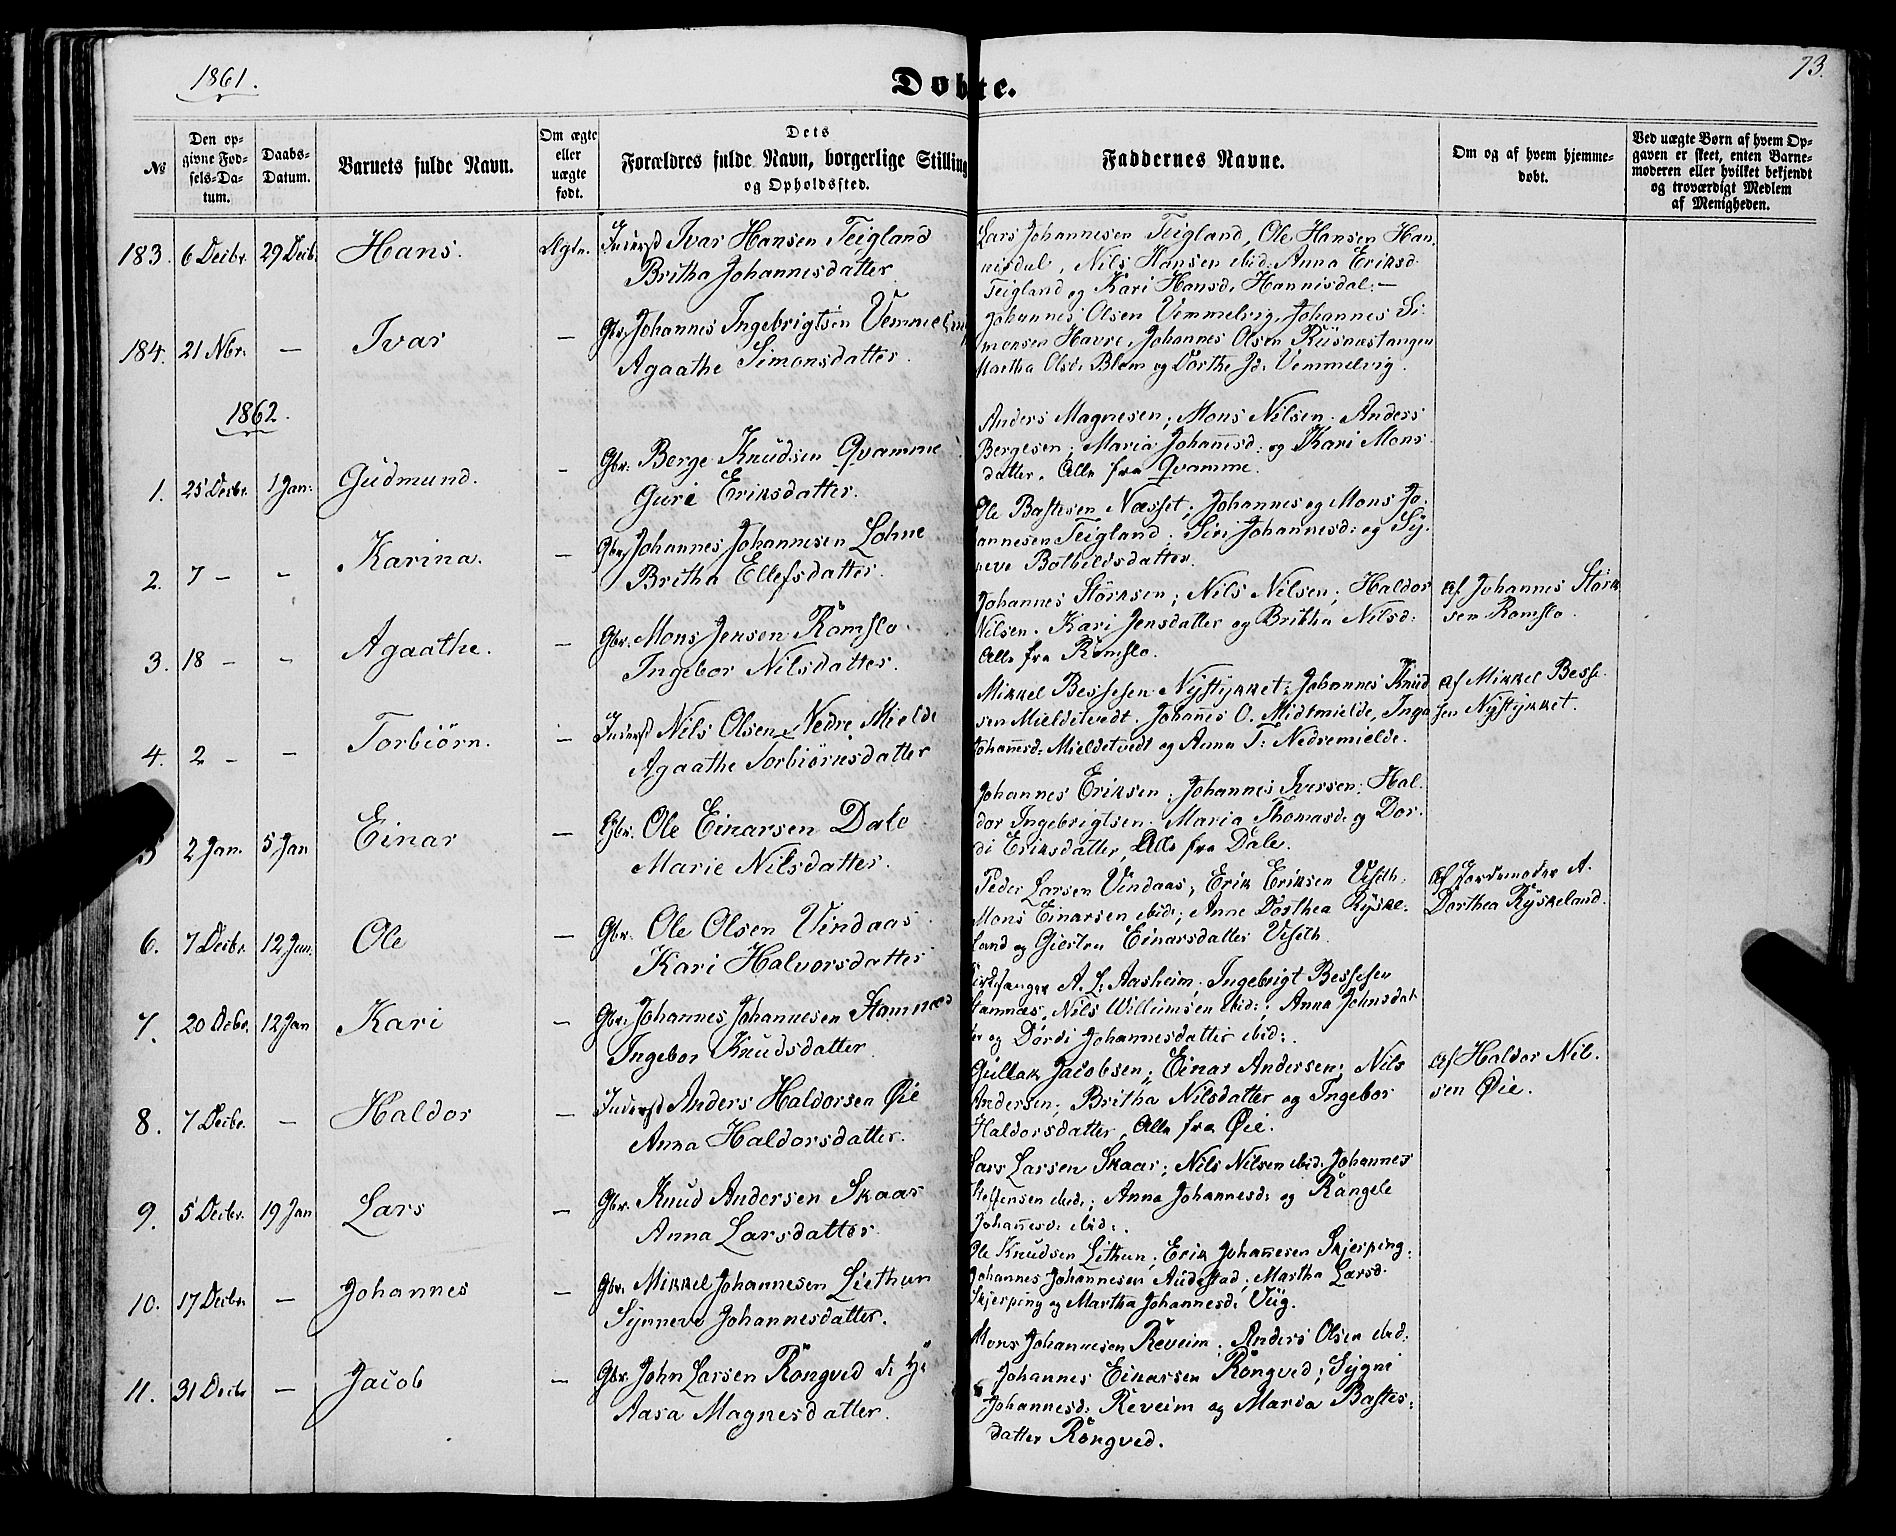 1861.
Døbte.
73.
№
Den op-
givne Fød-
sels-Da-
tum.
Daabs-
Datum.
Barnets fulde Navn.
Om ægte
eller
uægte
født.
Dets
Forældres fulde Navn, borgerlige Stilling
og Opholdssted.
Faddernes Navne.
Om og af hvem hjemme-
døbt.
Ved uægte Børn af hvem Op-
gaven er skeet, enten Barne-
moderen eller hvilket bekjendt
og troværdigt Medlem
af Menigheden.
183. 6 Decbr. 29 Decb. Hans. Ægte. Inderst Ivar Hansen Teigland
Britha Johannesdatter
Lars Johannesen Teigland, Ole Hansen Han-
nisdal, Nils Hansen ibid: Anna Eriksd
Teigland og Kari Hansd: Hannisdal. —
184. 21 Nbr. — Ivar — Gbr. Johannes Ingebrigtsen Vemmelvig
Agaathe Simonsdatter.
Johannes Olsen Vemmelvig, Johannes Si-
monsen Havre, Johannes Olsen Riisnæstangen
Martha Olsd: Blom og Dorthe Jd: Vemmelvig.
1862.
1. 25 Decbr. 1 Jan: Gudmund. — Gbr. Berge Knudsen Qvamme
Guri Eriksdatter.
Anders Magnesen; Mons Nilsen. Anders
Bergesen; Maria Johannsd: og Kari Mons-
datter. Alle fra Qvamme.
2. 7 — — Karina. — Gbr. Johannes Johannesen Lohne
Britha Ellefsdatter.
Ole Bastesen Næsset; Johannes og Mons Jo-
hannesen Teigland; Siri Johannesd: og Sy-
neve Bothildsdatter.
3. 18 — — Agaathe. — Gbr. Mons Jensen Romslo.
Ingebor Nilsdatter.
Johannes Størksen; Nils Nilsen; Haldor
Nilsen. Kari Jensdatter og Britha Nilsd:
Alle fra Romslo.
Af Johannes Størk
sen Romslo.
4. 2 — — Torbiørn. — Inderst Nils Olsen Nedre Mielde
Agaathe Torbiørnsdatter
Mikkel Bessesen Nystykket; Johannes Knud
sen Mieldetvedt. Johannes O. Midtmielde, Inga
Johannsd: Mieldetvedt og Anna T: Nedremielde.
Af Mikkel Besse-
sen Nystykket.
5 2 Jan. 5 Jan Einar — Gbr. Ole Einarsen Dale
Marie Nilsdatter.
Johannes Eriksen; Johannes Iversen; Hal-
dor Ingebrigtsen. Maria Thomasd: og Dor-
di Eriksdatter, Alle fra Dale.
6. 7 Decbr. 12 Jan. Ole — Gbr. Ole Olsen Vindaas
Kari Halvorsdatter
Peder Larsen Vindaas; Erik Eriksen Veseth.
Mons Einarsen ibid:; Anne Dorthea Ryske-
land og Giertru Einarsdatter Veseth.
Af Jordemoder A.
Dorthea Ryskeland.
7. 20 Decbr. 12 Jan Kari — Gbr. Johannes Johannesen Stamnæs
Ingebor Knudsdatter.
Kirkesanger A. L. Aasheim; Ingebrigt Bessesen
Stamnæs, Nils Willumsen ibid:; Anna Johnsdat-
ter og Dordi Johannesdatter ibid:.
8. 7 Decbr. — Haldor — Inderst Anders Haldorsen Øie
Anna Haldorsdatter.
Gullak Jacobsen; Einar Andersen; Nils
Andersen; Britha Nilsdatter og Ingebor
Haldorsdatter, Alle fra Øie.
Af Haldor Nil-
sen Øie.
9. 5 Decbr. 19 Jan Lars — Gbr. Knud Andersen Skaar
Anna Larsdatter.
Lars Larsen Skaar; Nils Nilsen ibid: Johannes
Steffensen ibid:; Anna Johannesd: og Rangele
Johannesd: ibid:.
10. 17 Decbr. — Johannes — Gbr. Mikkel Johannesen Liethun
Synneve Johannesdatter.
Ole Knudsen Lithun; Erik Johannesen Skjerping;
Johannes Johannesen Audestad; Martha Larsd.
Skjerping og Martha Johannesd: Viig.
11. 31 Decbr — Jacob — Gbr. John Larsen Rongved
Aasa Magnesdatter.
Mons Johannesen Reveim; Anders Olsen ibid:
Johannes Einarsen Rongved; Sygni
Johannesd: Reveim og Marda Bastes-
datter Rongved.